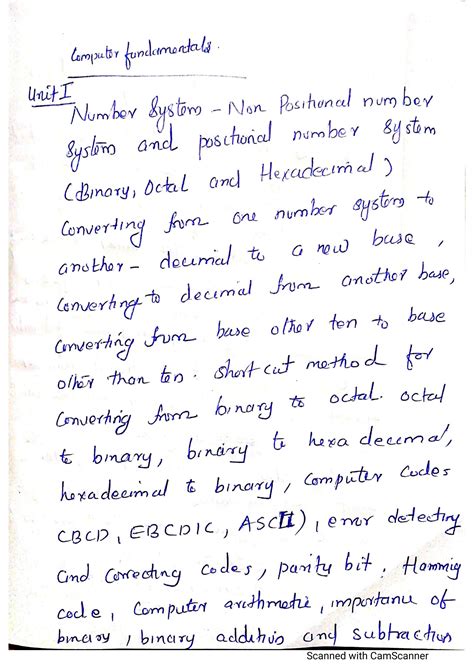 Computer fundamentals.
Unit I
Number System - Non Positional number
System and positional number System
(Binary, Octal and Hexadecimal)
Converting from one number system to
another - decimal to a new base,
Converting to decimal from another base,
Converting from base other ten to base
other than ten. short cut method for
Converting from binary to octal. octal
to binary, binary to hexa decimal,
hexadecimal to binary, Computer Codes
CBCD, EBCDIC, ASCII), error detecting
and Correcting codes, parity bit, Hamming
code, Computer arithmetic, importance of
binary, binary additions and subtraction
Scanned with CamScanner